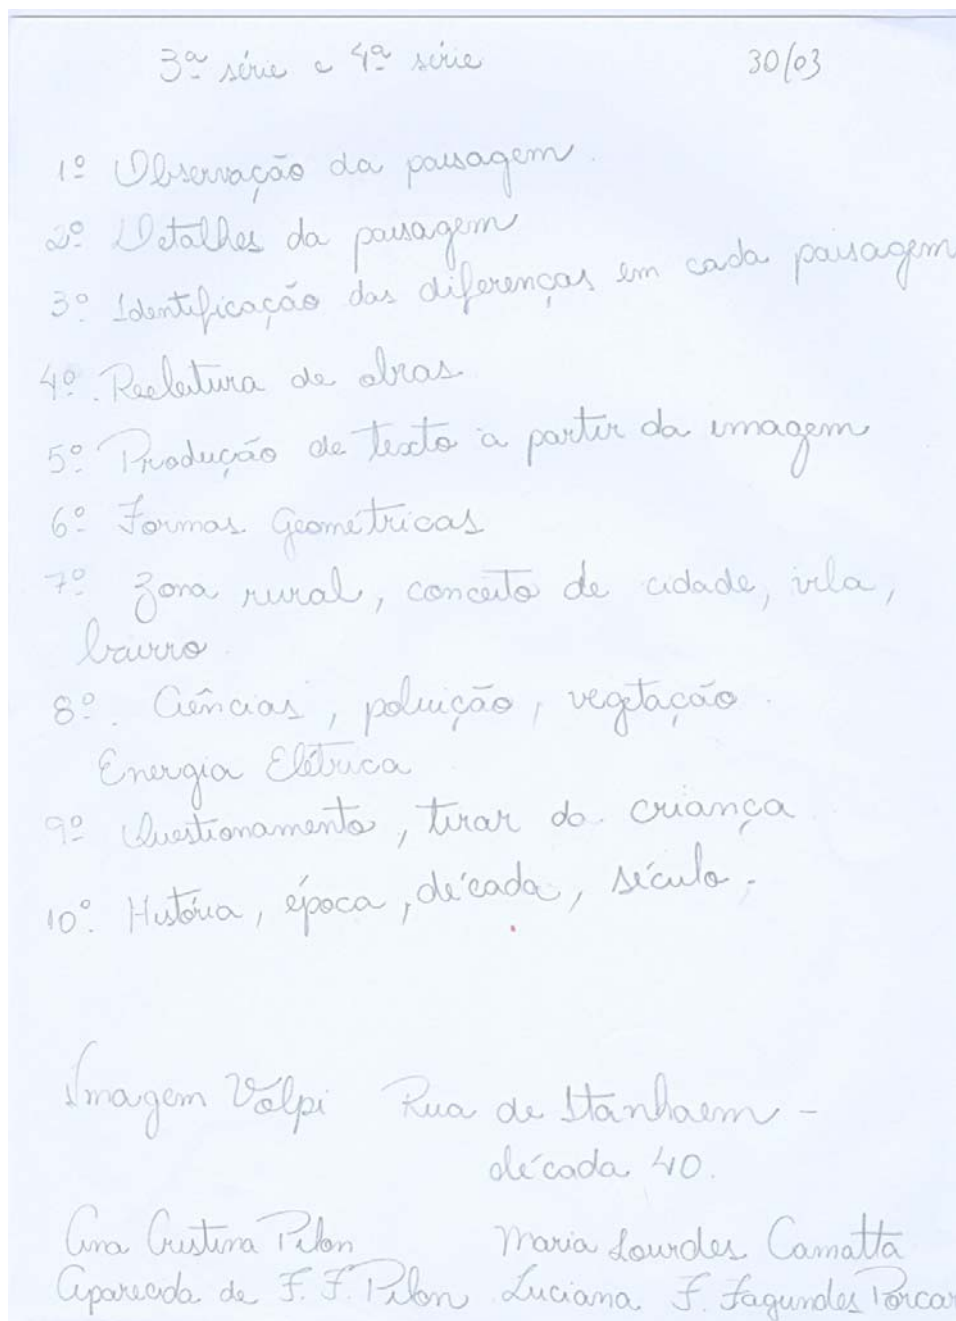 3ª série e 4ª série 30/03
1º Observação da paisagem.
2º Detalhes da paisagem
3º Identificação das diferenças em cada paisagem
4º. Reeleitura de obras.
5º Produção de texto a partir da imagem
6º Formas Geométricas
7º Zona rural, conceito de cidade, vila,
bairro.
8º. Ciências, poluição, vegetação.
Energia Elétrica
9º Questionamento, tirar da criança
10º. História, época, década, século.
Imagem Volpi Rua de Itanhaem -
década 40.
Ana Cristina Pilon Maria Lourdes Camatta
Aparecida de F. F. Pilon Luciana F. Fagundes